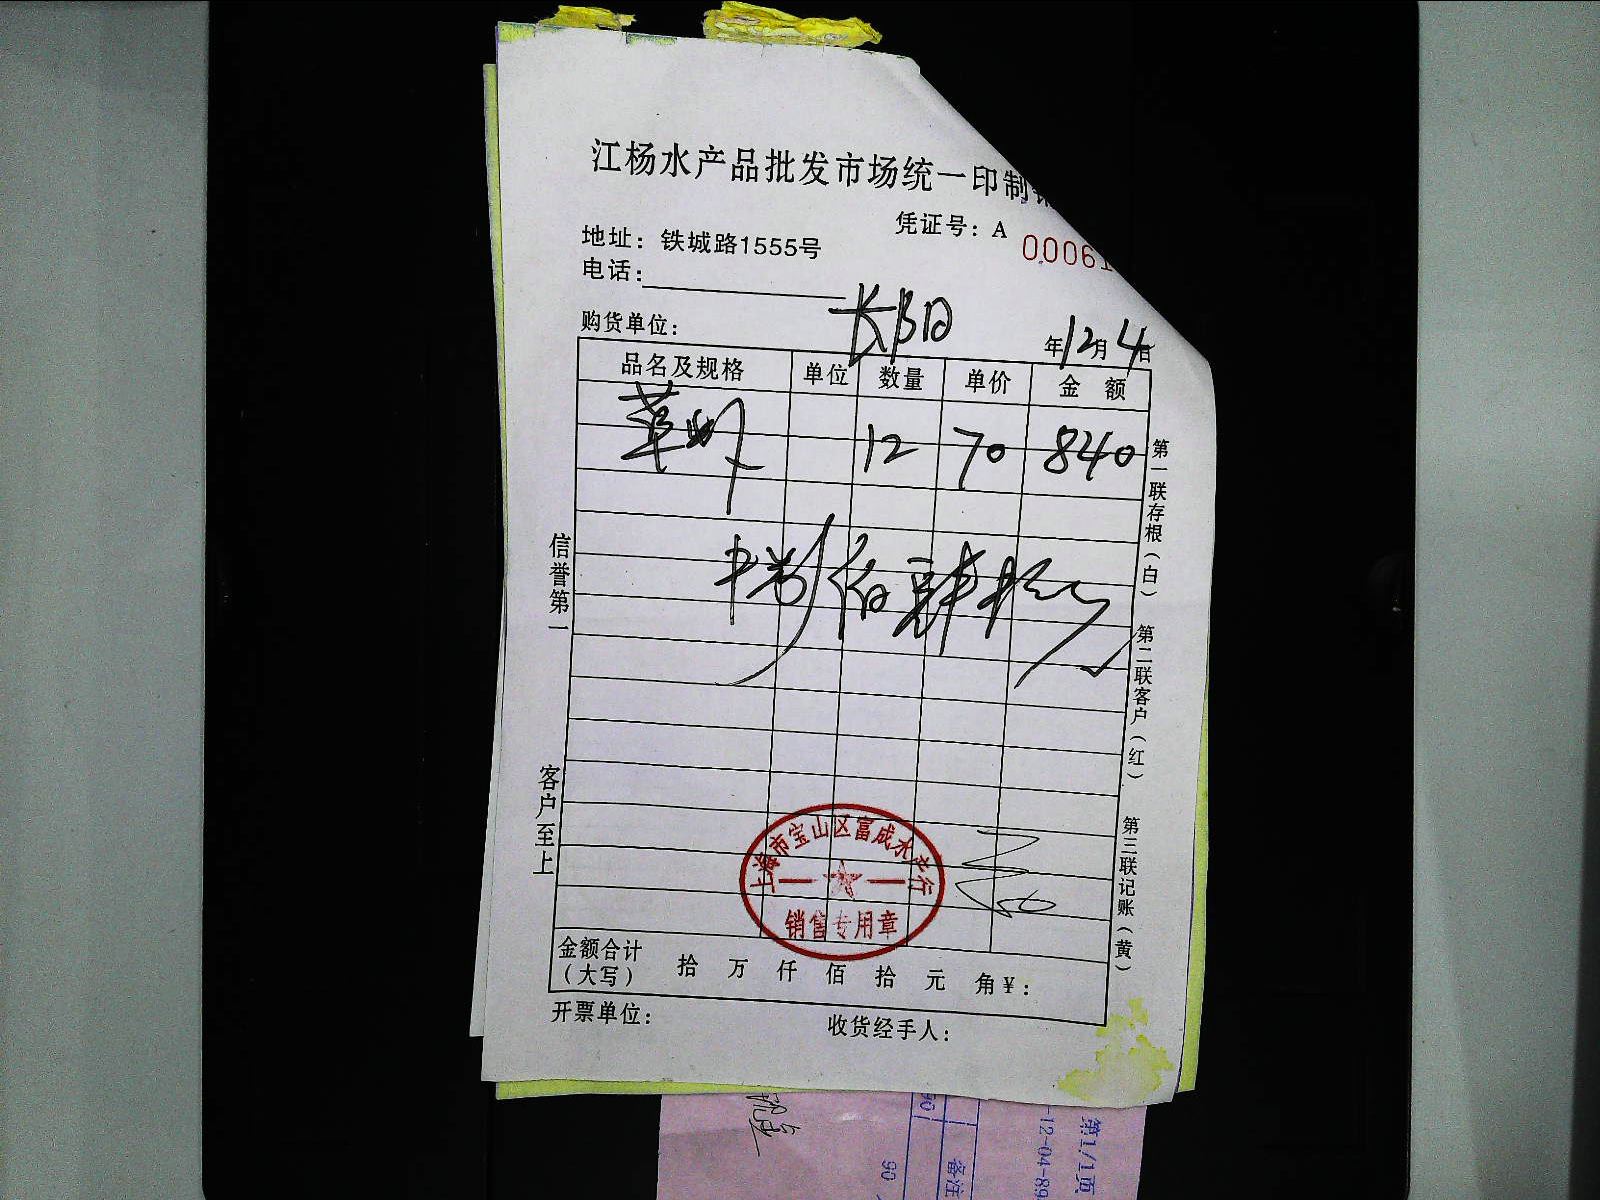 江杨水产品批发市场统一印制
凭证号：A 00061
地址：铁城路1555号
电话：
购货单位：长阳
年12月4日
品名及规格 单位 数量 单价 金 额
草虾 12 70 840
信誉第一
客户至上
第一联存根（白） 第二联客户（红） 第三联记账（黄）
上海市宝山区富成水产行
销售专用章
金额合计（大写） 拾 万 仟 佰 拾 元 角 ¥：
开票单位： 收货经手人：
第1/1页
-12-04-89
备注
90
90